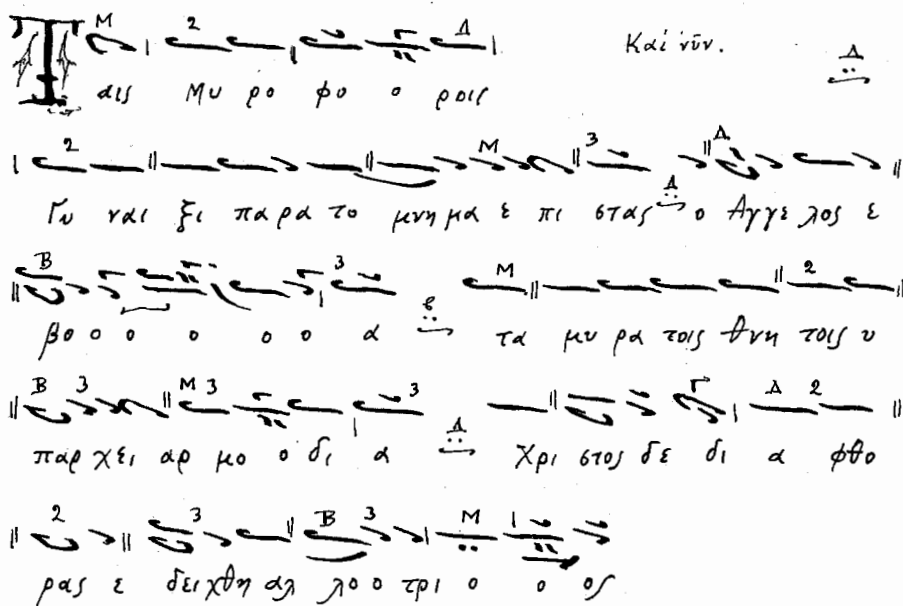 Καὶ νῦν.
Ταις Μυ ρο φο ο ροις
Γυ ναι ξι πα ρα το μνη μα ε πι στας ο Αγ γε λος ε
βο ο ο ο ο ο ο α τα μυ ρα τοις θνη τοις υ
παρ χει αρ μο ο δι α Χρι στος δε δι α φθο
ρας ε δει χθη αλ λο ο τρι ο ο ος